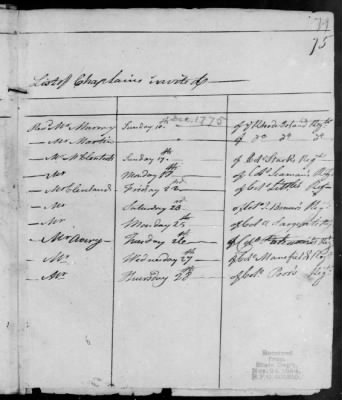 74
75
List of Chaplains invited
Revd Mr Murray Sunday 10th Dec. 1775 of ye Rhode Island Regts
— Mr Martin " of Do Do Do
— Mr McClentick Sunday 17th of Colo Starks Regt
— Mr Monday 18th of Colo Learnans Regt
— McClenland Friday 22nd of Colo Littles Regt
— Mr Saturday 23rd of Colo Regt
— Mr Monday 25th of Colo Sargents Regt
— Mr Avery Tuesday 26th of Colo Regt
— Mr Wednesday 27th of Colo Mansfield Regt
— Mr Thursday 28th of Colo Poors Regt
Received
from
State Dept.